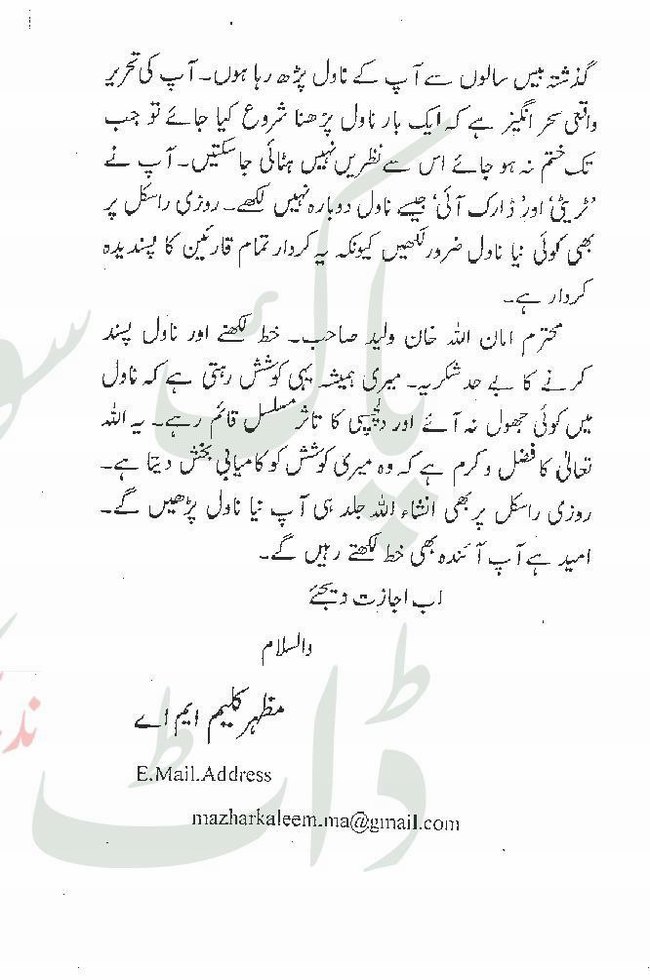 گذشتہ بیس سالوں سے آپ کے ناول پڑھ رہا ہوں۔ آپ کی تحریر
واقعی سحر انگیز ہے کہ ایک بار ناول پڑھنا شروع کیا جائے تو جب
تک ختم نہ ہو جائے اس سے نظریں نہیں ہٹائی جا سکتیں۔ آپ نے
’ٹریٹی‘ اور ’ڈارک آئی‘ جیسے ناول دوبارہ نہیں لکھے۔ روزی راسکل پر
بھی کوئی نیا ناول ضرور لکھیں کیونکہ یہ کردار تمام قارئین کا پسندیدہ
کردار ہے۔
محترم امان اللہ خان ولید صاحب۔ خط لکھنے اور ناول پسند
کرنے کا بے حد شکریہ۔ میری ہمیشہ یہی کوشش رہتی ہے کہ ناول
میں کوئی جھول نہ آئے اور دلچسپی کا تاثر مسلسل قائم رہے۔ یہ اللہ
تعالیٰ کا فضل و کرم ہے کہ وہ میری کوشش کو کامیابی بخش دیتا ہے۔
روزی راسکل پر بھی انشاء اللہ جلد ہی آپ نیا ناول پڑھیں گے۔
امید ہے آپ آئندہ بھی خط لکھتے رہیں گے۔
اب اجازت دیجئے
والسلام
مظہر کلیم ایم اے
E.Mail.Address
mazharkaleem.ma@gmail.com
پاک
ڈاٹ